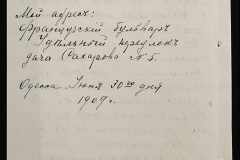 Мой адресъ:
Французскій бульваръ
Удѣльный переулокъ
дача Сахарова № 5.
Одесса Июня 30го дня
1909 г.